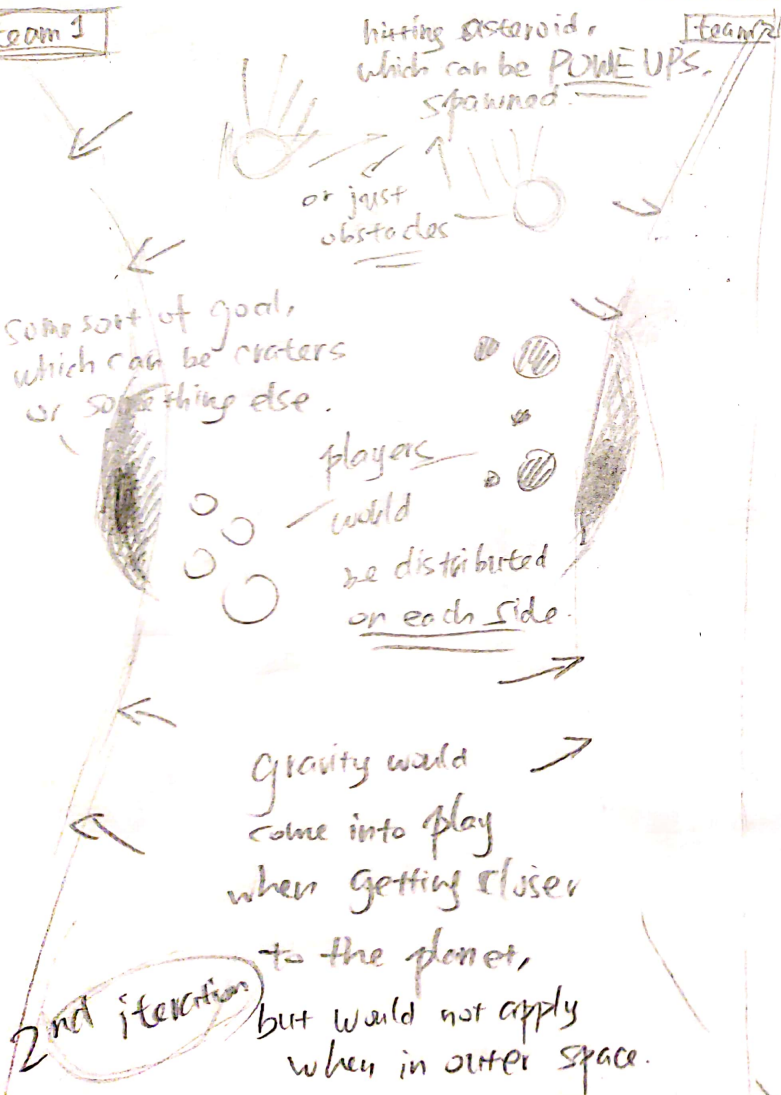 team 1
team 2
hitting asteroid,
which can be POWE UPS,
spawned.
or just
obstacles
some sort of goal,
which can be craters
or something else.
players
would
be distributed
on each side.
gravity would
come into play
when getting closer
to the planet,
but would not apply
when in outer space.
2nd iteration